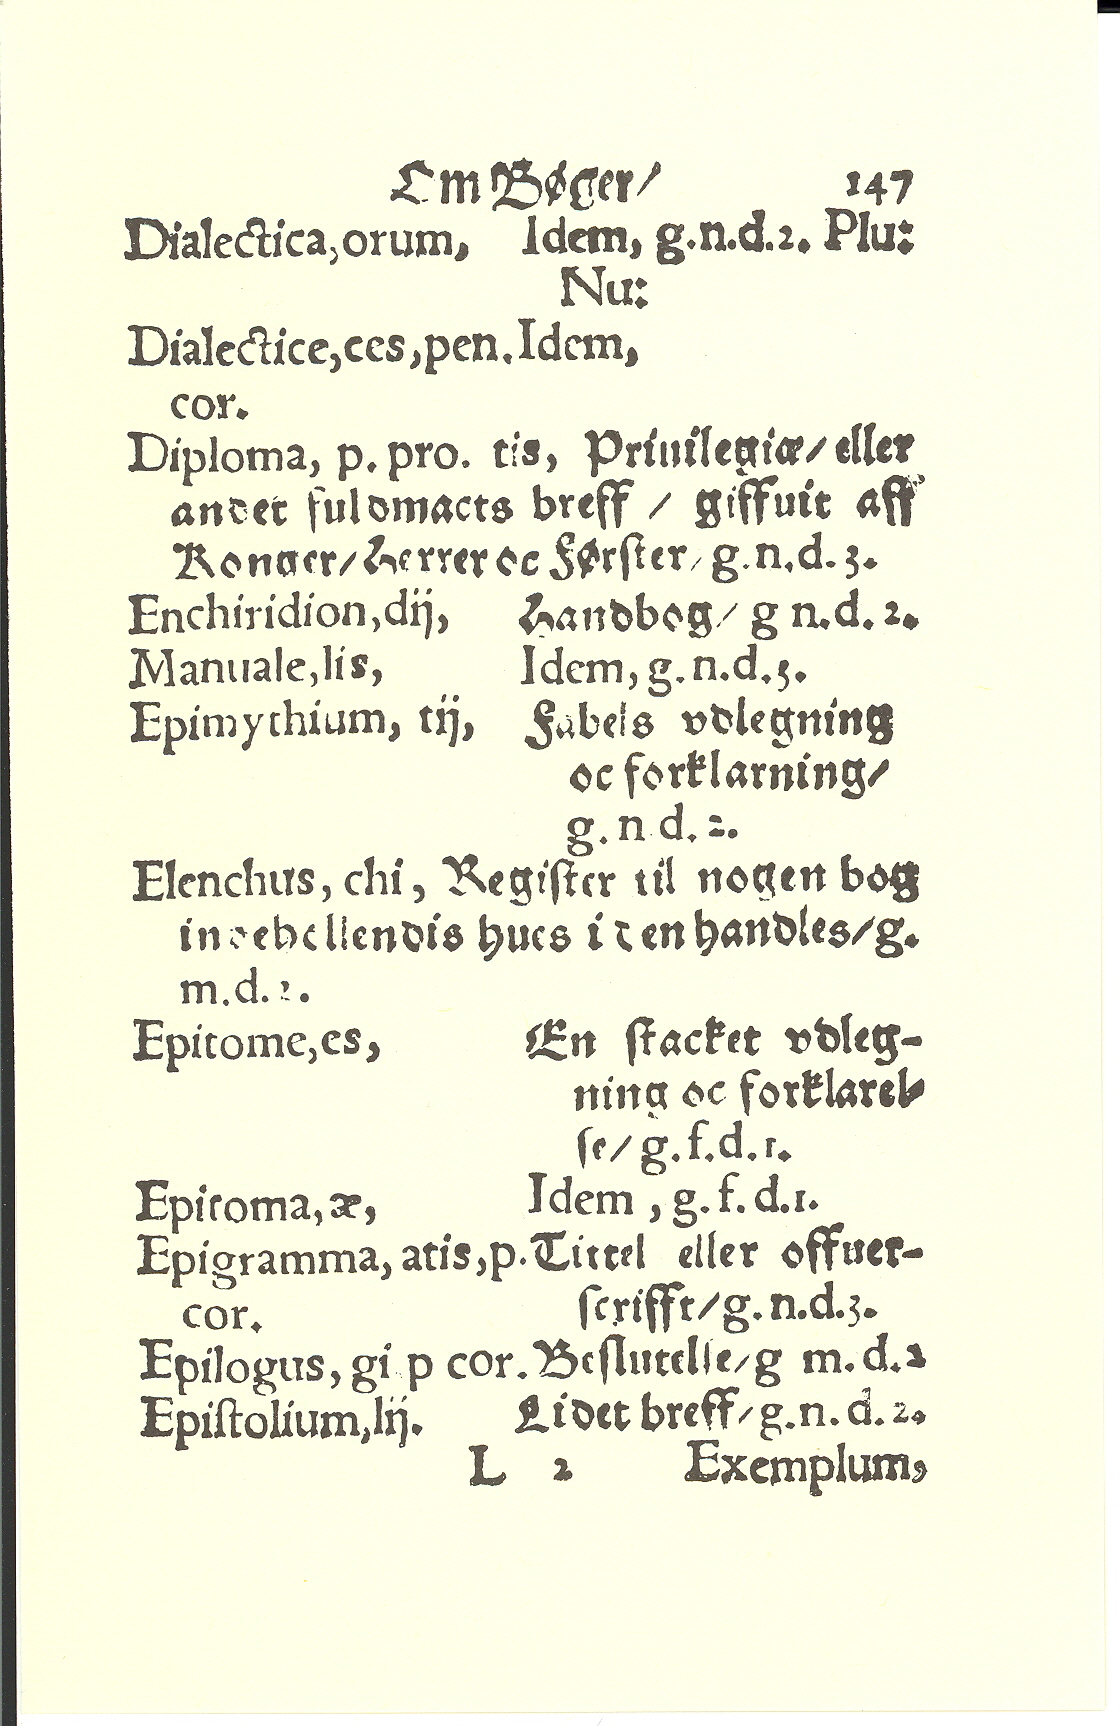 Om Bøger/ 147
Dialectica,orum, Idem, g.n.d.2. Plu:
Nu:
Dialectice,ces,pen. Idem,
cor.
Diploma, p. pro. tis, Priuilegiæ/ eller
andet fuldmacts breff / giffuit aff
Konger/ Herrer oc Førster/ g.n.d.3.
Enchiridion,dij, Handbog/ g n.d.2.
Manuale,lis, Idem, g.n.d.3.
Epimythium, tij, Fabels vdlegning
oc forklarning/
g.n d.2.
Elenchus, chi, Register til nogen bog
indeholdendis hues i den handles/g.
m.d.2.
Epitome,es, En stacket vdleg-
ning oc forklarel-
se/ g.f.d.1.
Epitoma,æ, Idem , g.f.d.1.
Epigramma, atis,p. Tittel eller offuer-
cor. scrifft/g.n.d.3.
Epilogus, gi p cor. Beslutelse/g m.d.2
Epistolium,lij. Lidet breff/g.n.d.2.
L 2 Exemplum,